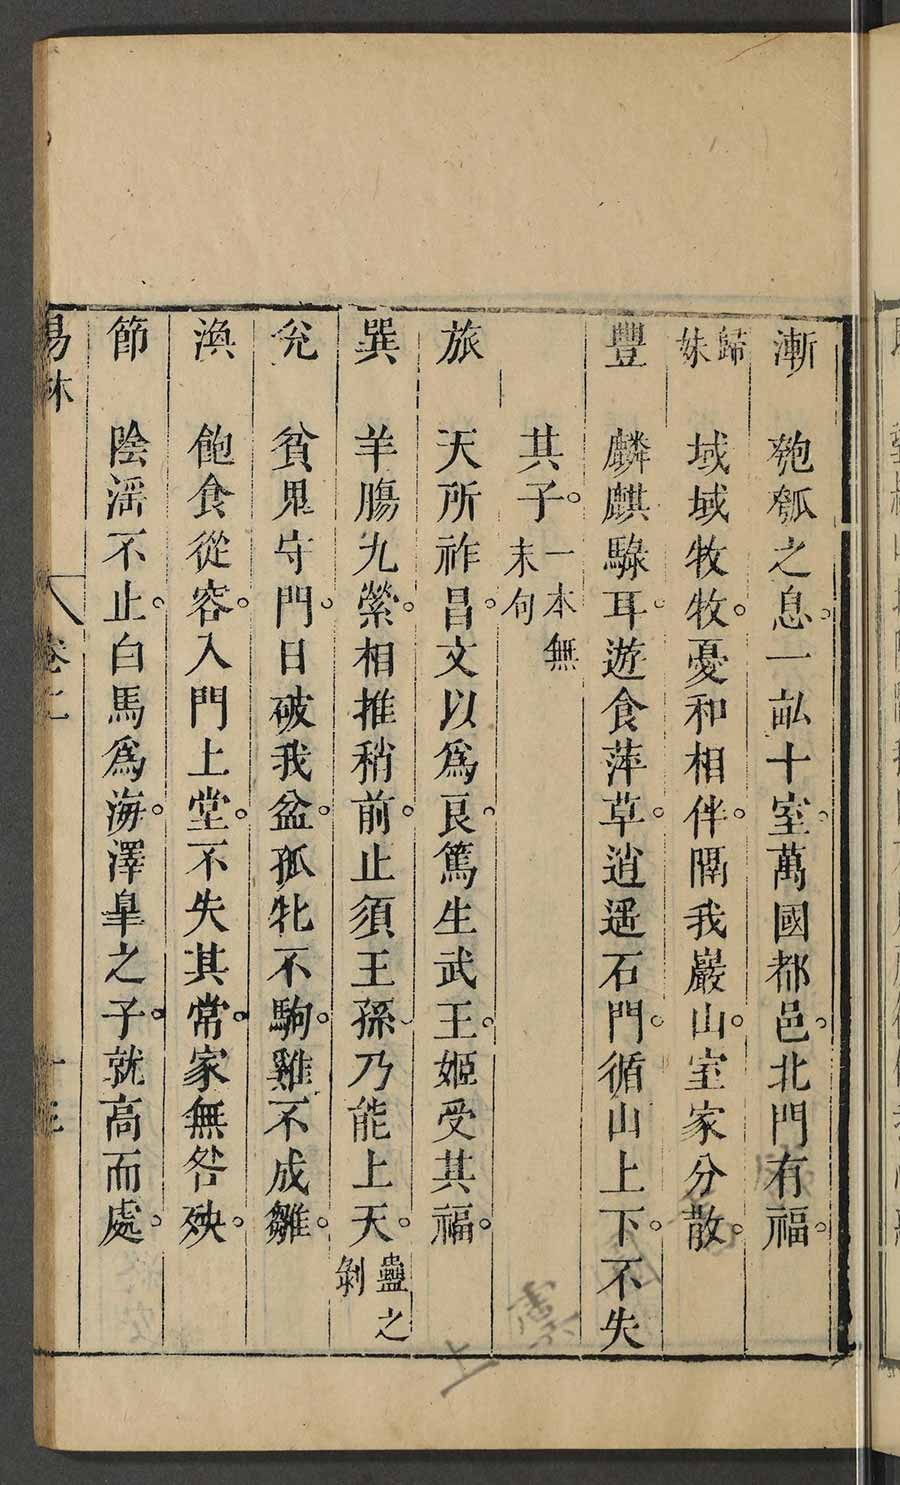 漸　匏瓠之息。一畝十室。萬國都邑。北門有福。
歸妹　域域牧牧。憂和相伴。隔我巖山。室家分散。
豐　麟麒騄耳。遊食萍草。逍遙石門。循山上下。不失
其子。一本無末句
旅　天所祚昌。文以為良。篤生武王。姬受其福。
巽　羊腸九縈。相推稍前。止須王孫。乃能上天。蠱之剝
兊　貧鬼守門。日破我盆。孤牝不駒。雞不成雛。
渙　飽食從容。入門上堂。不失其常。家無咎殃。
節　陰滛不止。白馬爲海。澤臯之子。就高而處。
易林　卷之